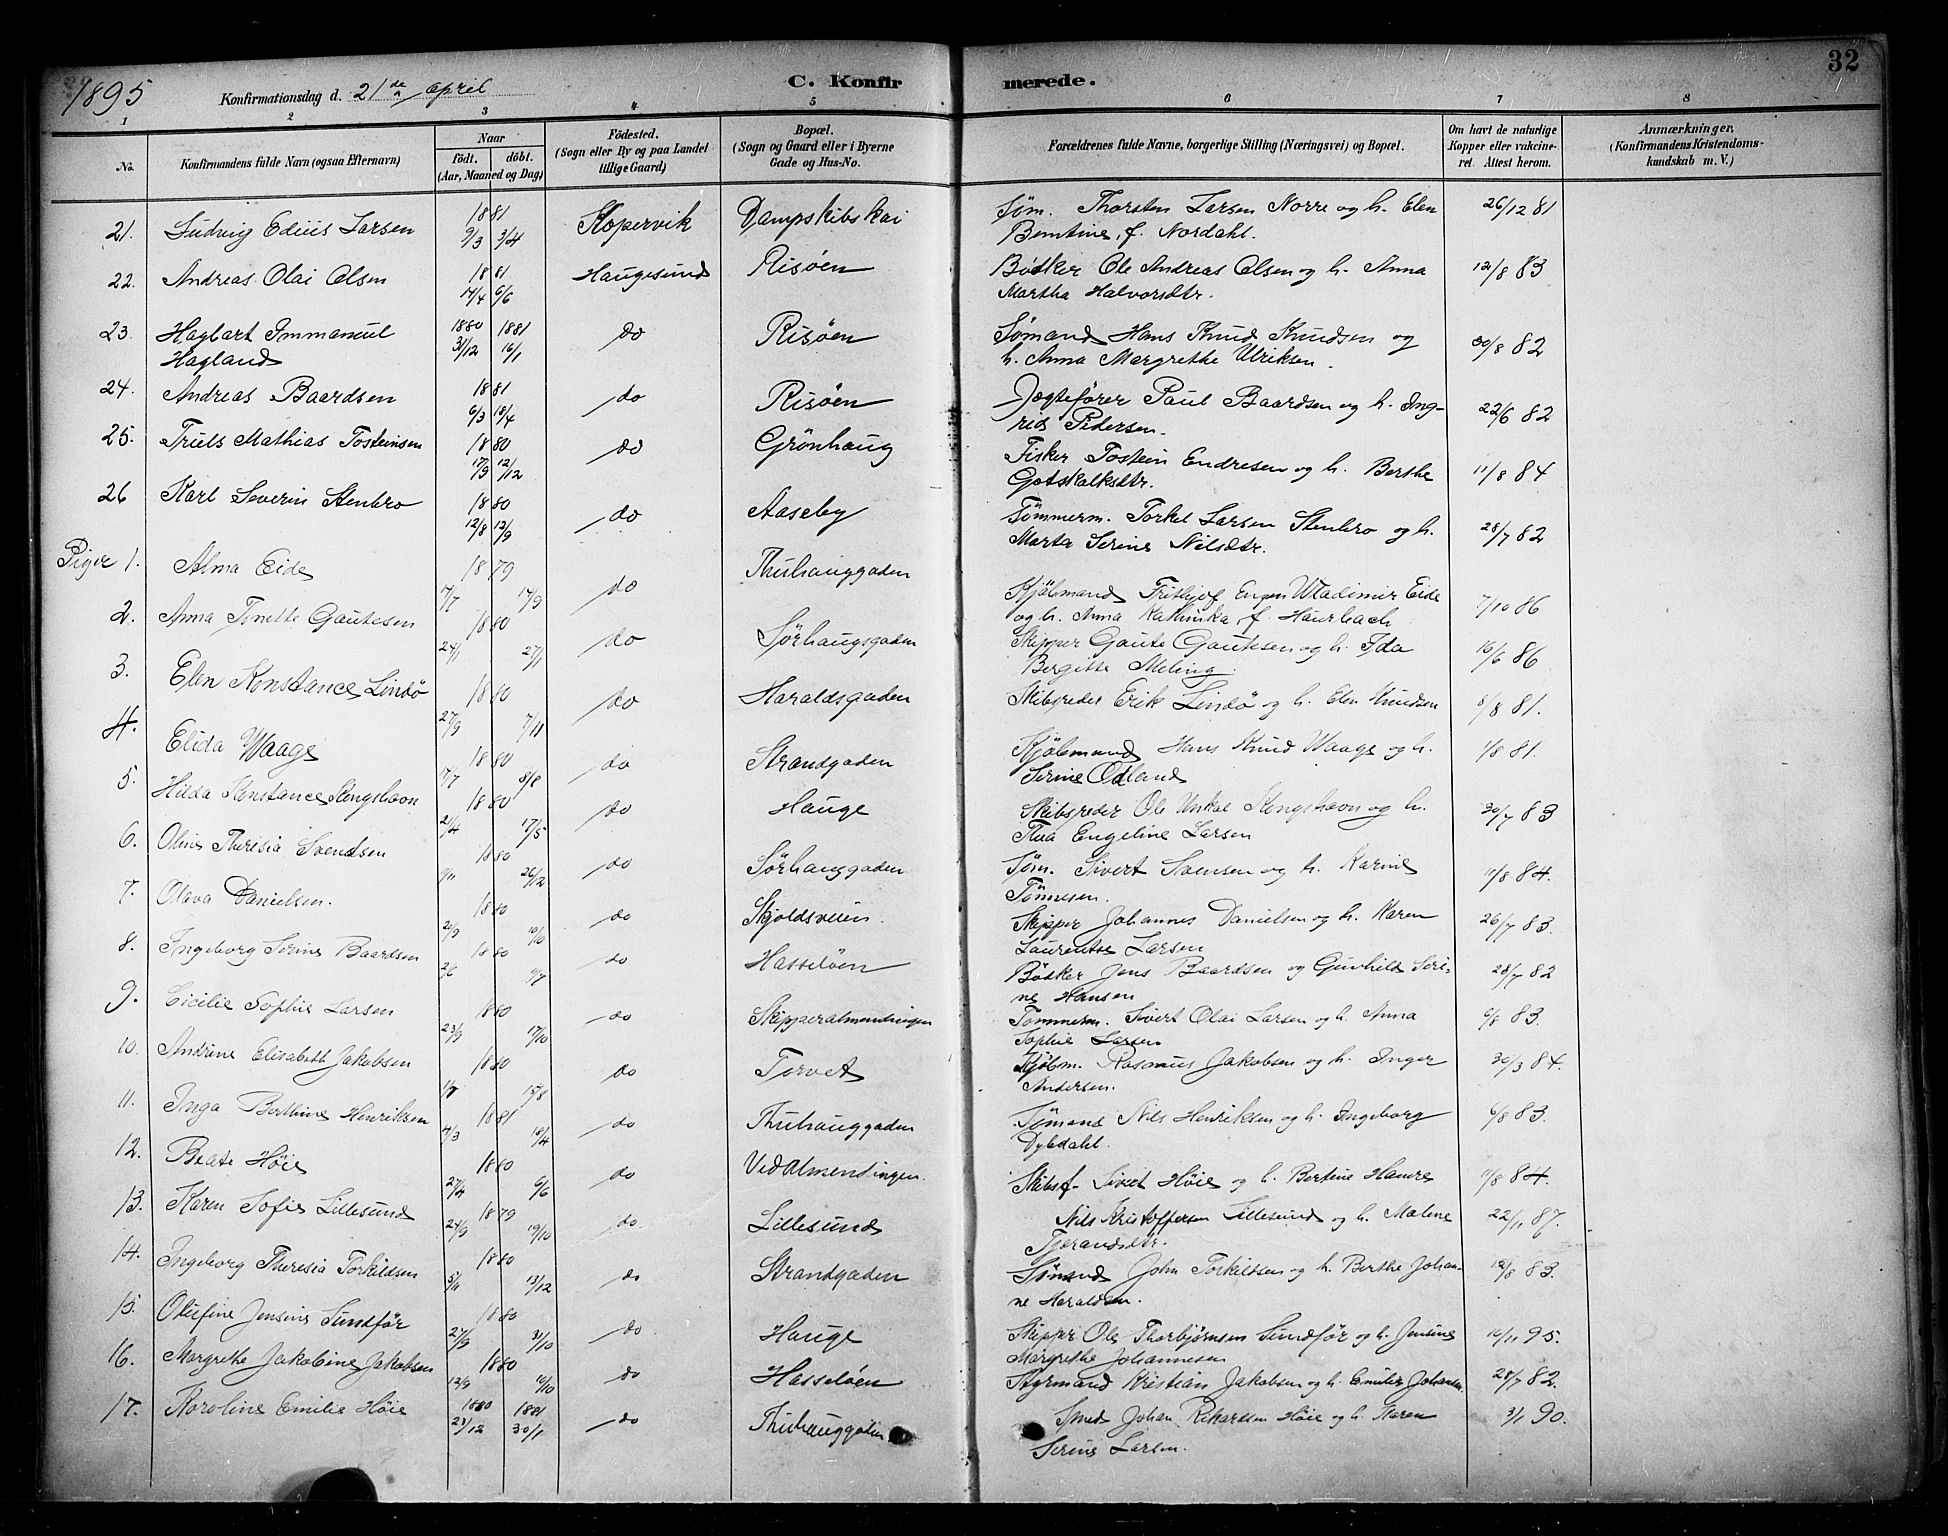 32
1895
Konfirmationsdag d. 21de April
C. Konfirmerede.
1 2 3 4 5 6 7 8
No.
Konfirmandens fulde Navn (ogsaa Efternavn)
Naar
født. døbt.
(Aar, Maaned og Dag)
Fødested.
(Sogn eller By og paa Landet
tillige Gaard)
Bopæl.
(Sogn og Gaard eller i Byerne
Gade og Hus-No.
Forældrenes fulde Navne, borgerlige Stilling (Næringsvei) og Bopæl.
Om havt de naturlige
Kopper eller vakcine-
ret. Attest herom.
Anmærkninger.
(Konfirmandens Kristendoms-
kundskab m. V.)
21. Ludvig Edius Larsen 1881 9/3 3/4 Kopervik Dampskibskai Søm. Thorsten Larsen Norre og h. Elen
Bentine, f. Nordahl. 26/12 81
22. Andreas Olai Olsen 1881 14/4 6/6 Haugesund Risøen Bødker Ole Andreas Olsen og h. Anna
Martha Halvorsdtr. 12/8 83
23. Hagbart Immanuel
Hagland 1880 31/12 1881 16/1 do Risøen Sømand Hans Knud Knudsen og
h. Anna Margrethe Ulriksen. 30/8 82
24. Andreas Baardsen 1881 6/3 18/4 do Risøen Jagtefører Paul Baardsen og h. Ing-
rid Pedersen. 22/6 82
25. Truls Mathias Tosteinsen 1880 17/9 12/12 do Grönhaug Fisker Tostein Endresen og h. Berthe
Gotskalksdtr. 11/8 84
26 Karl Severin Stenbro 1880 12/8 12/9 do Aaseby Tømmerm. Torkel Larsen Stenbro og h.
Marta Serine Nilsdtr. 28/7 82
Piger 1. Alma Eide 1879 17/7 14/9 do Thuhauggaden Kjøbmand Frithjof Eugen Wladimir Eide
og h. Anna Kathinka, f. Haurbach 7/10 86
2. Anna Tonette Gautesen 1880 24/1 27/1 do Sørhaugsgaden Skipper Gaute Gautesen og h. Ida
Bergitte Meling. 16/6 86
3. Elen Konstance Lindø 1880 27/9 7/11 do Haraldsgaden Skibsreder Erik Lindø og h. Elen Knudsen 8/8 81.
4. Elida Waage 1880 17/7 8/8 do Strandgaden Kjøbmand Hans Knud Waage og h.
Serine Odland 1/8 81.
5. Hilda Konstance Kongshavn 1880 21/4 17/5 do Hauge Skibsreder Ole Unkel Kongshavn og h.
Thea Engeline Larsen 30/7 83
6. Oline Theresia Svendsen 1880 9/11 26/12 do Sørhauggaden Søm. Sivert Svensen og h. Karine
Tønnesen. 11/8 84.
7. Olava Danielsen. 1880 20/9 10/10 do Skjoldsveien Skipper Johannes Danielsen og h. Karen
Laurentse Larsen 26/7 83.
8. Ingeborg Serine Baardsen 1880 do Hasseløen Bødker Jens Baardsen og Gunhild Seri-
ne Hansen 28/7 82
9. Cicilie Sophie Larsen 1880 23/9 17/10 do Skipperalmendningen Tømmerm. Sivert Olai Larsen og h. Anna
Sophie Larsen 6/8 83.
10. Andrine Elisabeth Jakobsen 1880 15/8 do Torvet Kjøbm. Rasmus Jakobsen og h. Inger
Andersen. 30/3 84.
11. Inga Berthine Henriksen 1881 4/3 18/4 do Thuhauggaden Sømand Nils Henriksen og h. Ingeborg
Dybdahl. 6/8 83.
12. Beate Høie 1880 27/4 6/6 do Vedalmendingen. Skibsf. Sivert Høie og h. Bertine Hamre 11/8 84.
13. Karen Sofie Lillesund 1879 24/9 19/10 do Lillesund Nils Kristoffersen Lillesund og h. Malene
Tjerandsdtr. 22/11 87.
14. Ingeborg Theresia Torkildsen 1880 5/11 13/12 do Strandgaden Sømand John Torkildsen og h. Berthe Johan-
ne Haraldsen. 12/8 83.
15. Olufine Jensine Sundfør 1880 27/9 31/10 do Hauge Skipper Ole Thorbjørnsen Sundfør og h. Jensine
Margrethe Johannesen 10/11 95.
16. Margrethe Jakobine Jakobsen 1880 12/9 10/10 do Hasseløen Styrmand Kristian Jakobsen og h. Emilie Johansen. 28/7 82.
17. Karoline Emilie Høie 1880 23/12 1881 30/1 do Thuhauggaden Smed Johan Rikardsen Høie og h. Karen
Serine Larsen. 3/1 90.